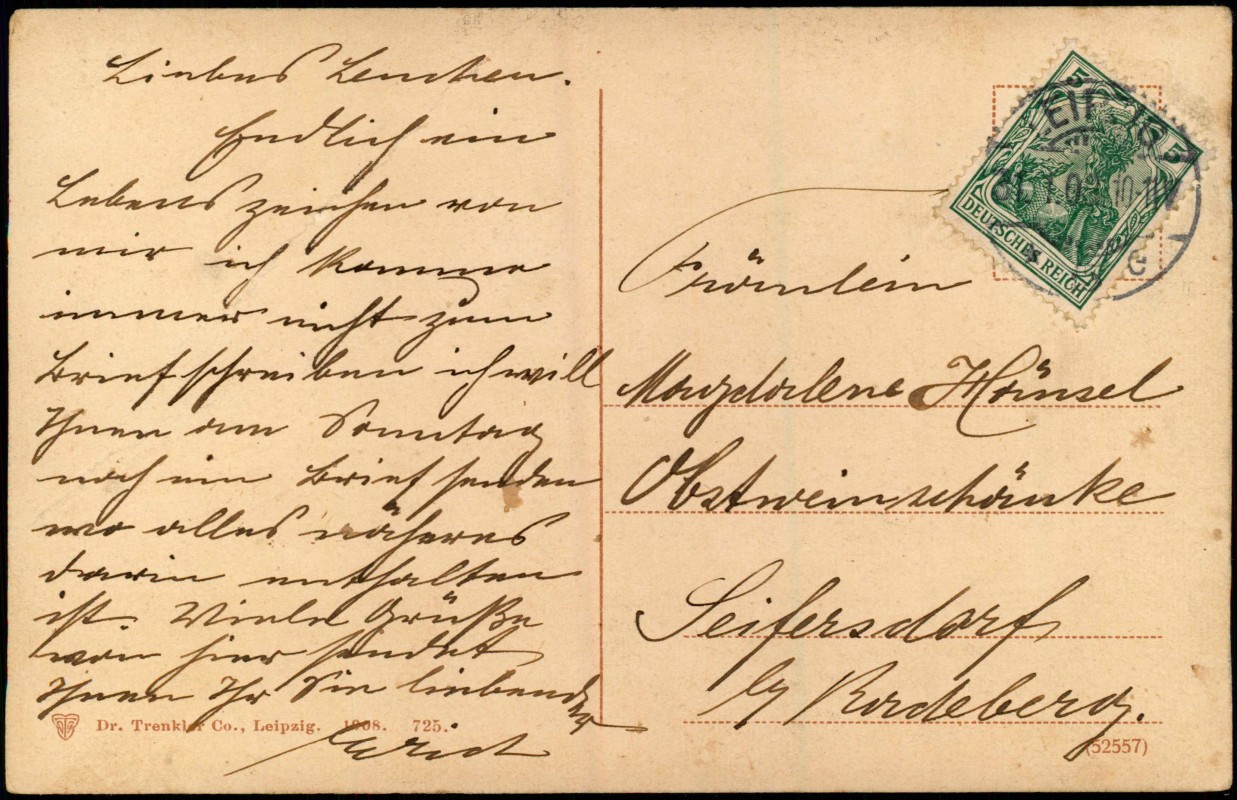 Liebes Lenchen.
Endlich ein
Lebens zeichen von
mir ich komme
immer nicht zum
Briefschreiben ich will
Ihnen am Sonntag
noch ein Brief senden
wo alles näheres
darin enthalten
ist. Viele Grüße
von hier sendet
Ihnen Ihr Sie liebender
Erich
Dr. Trenkler Co., Leipzig. 1908. 725.
5 5
DEUTSCHES REICH
LEIPZIG
10-11V
Fräulein
Magdalene Hänsel
Obstweinschänke
Seifersdorf
b/ Radeberg.
(52557)